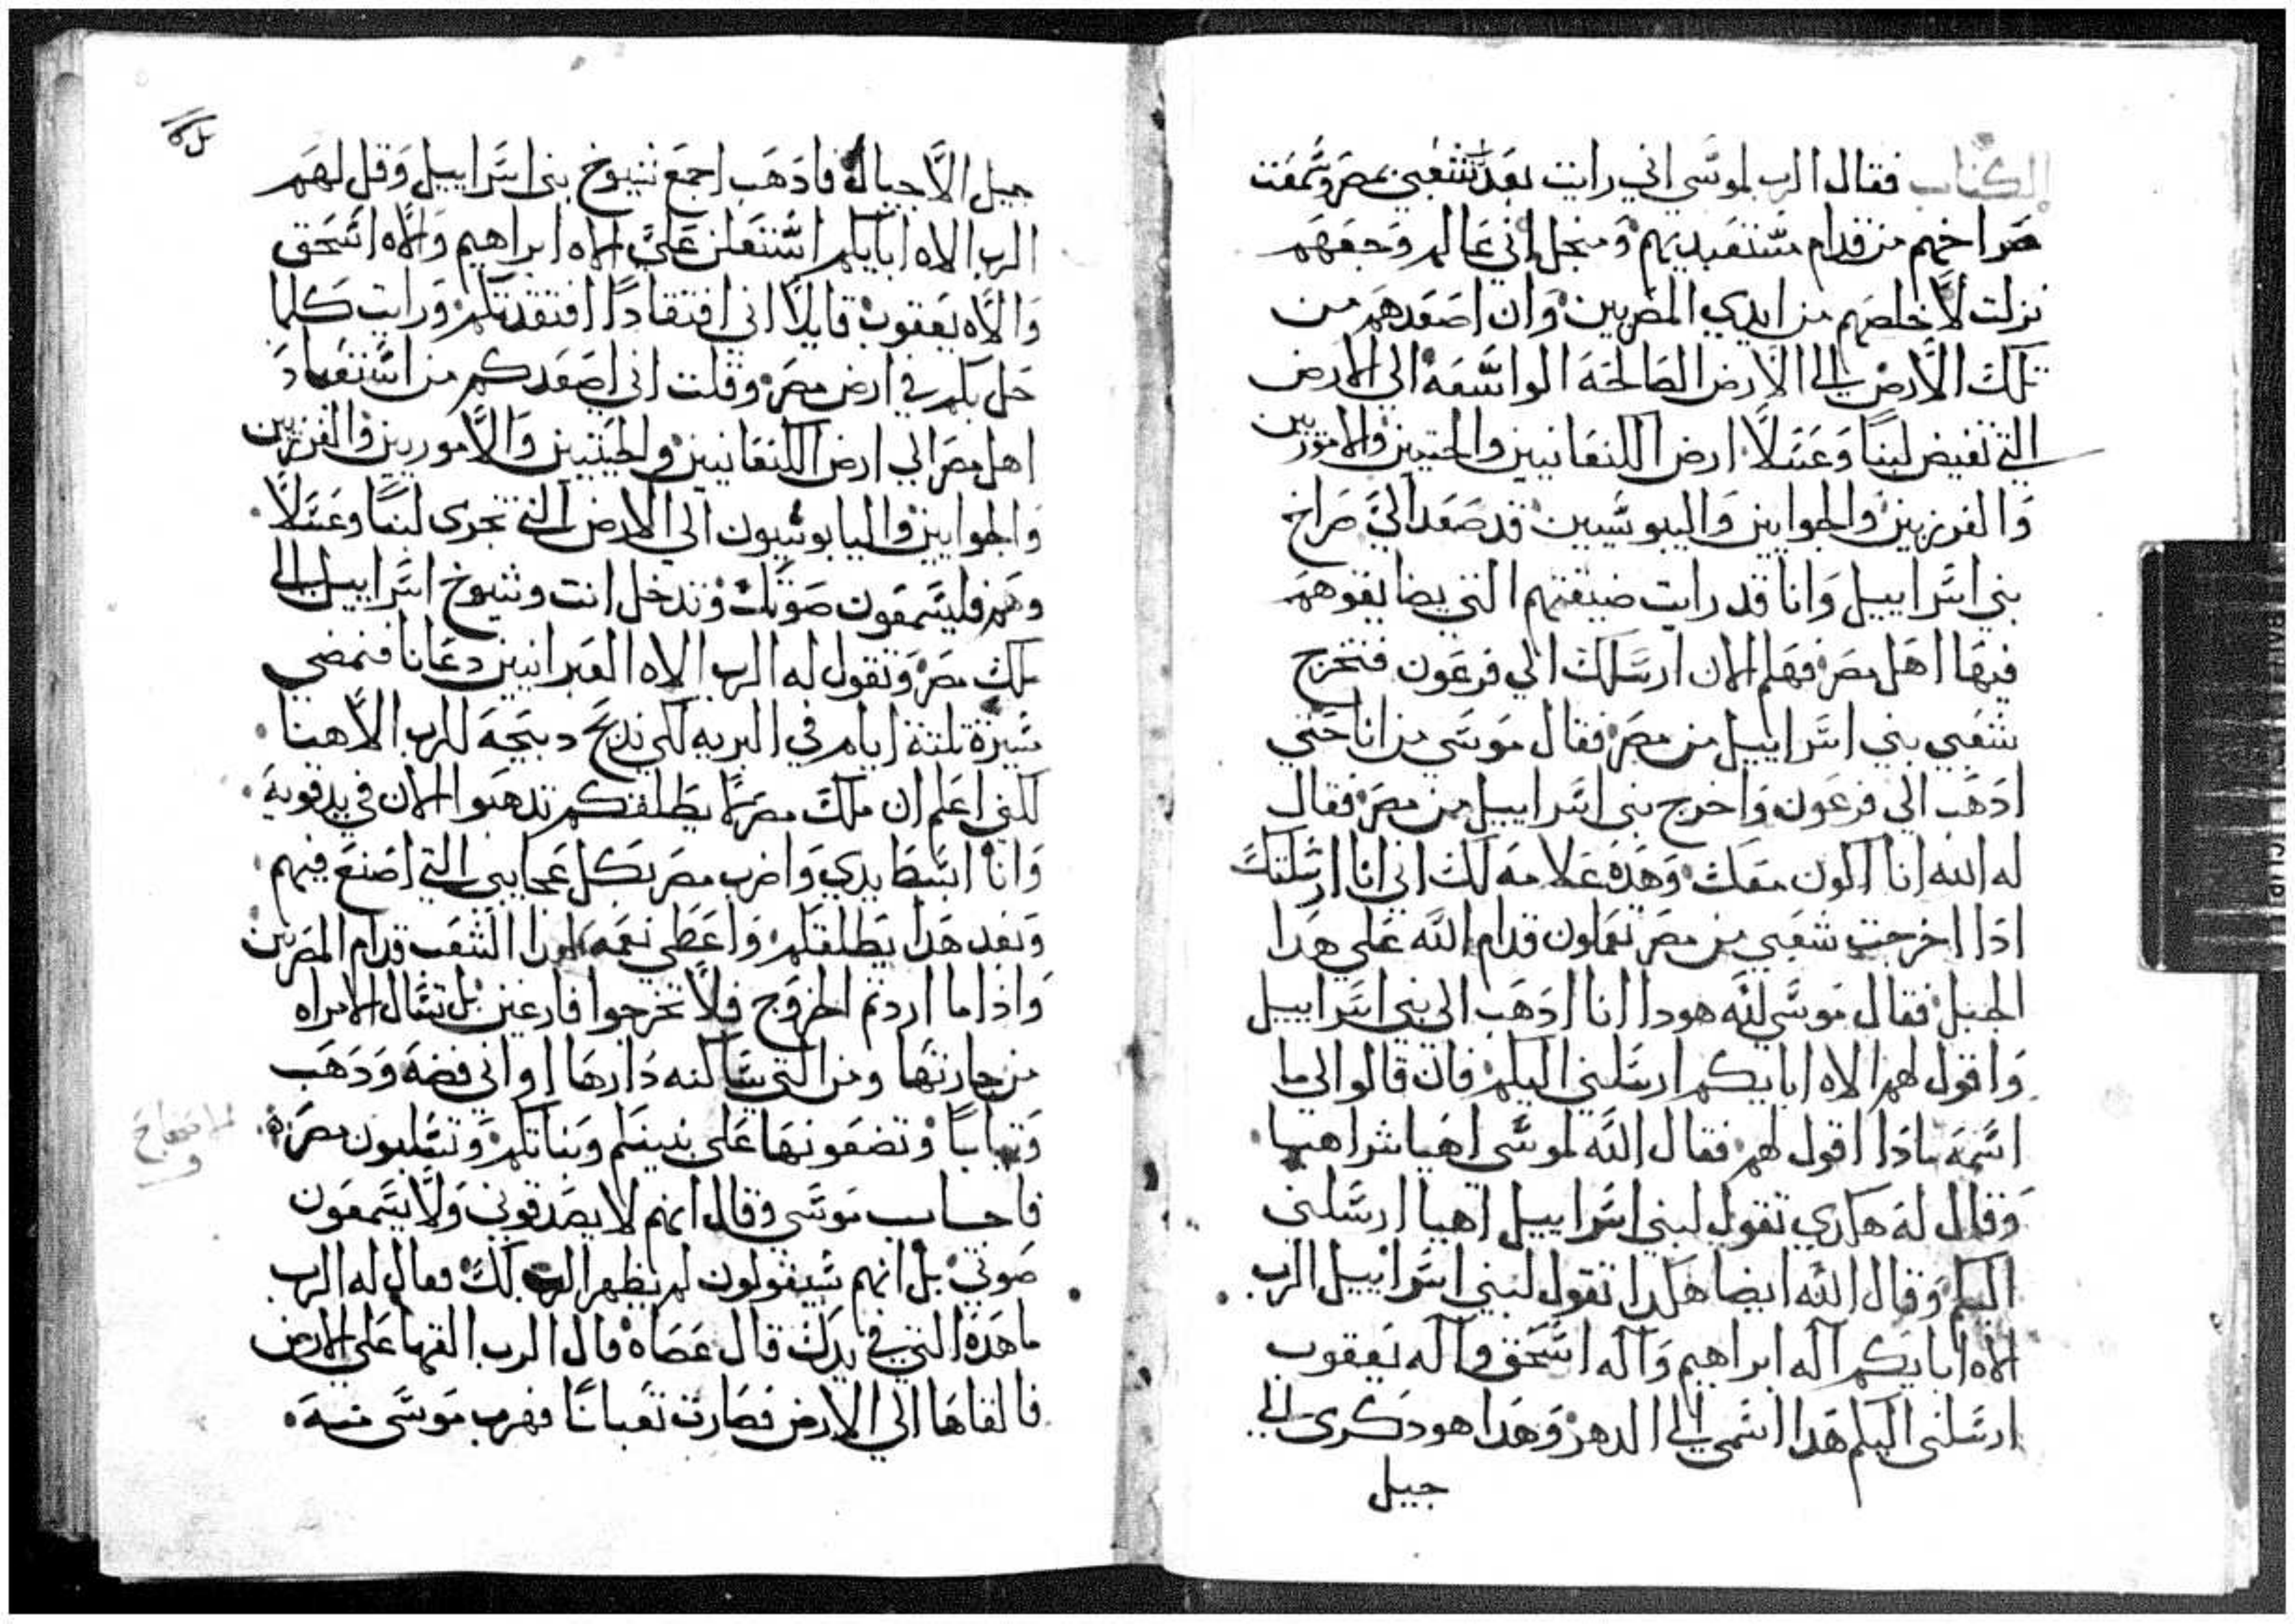 الكتاب فقال الرب لموسى اني رايت تعبد شعبي بمصر وسمعت
صراخهم من قدام مستعبديهم ومنجل اني عالم وجعهم
نزلت لاخلصهم من ايدي المصريين وان اصعدهم من
تلك الارض الي الارض الصالحة الواسعه الي الارض
التي تفيض لبنا وعسلا ارض الكنعانيين والحتيين والاموريين
والفرزيين والحوايين واليبوسيين قد صعد الي صراخ
بني اسراييل وانا قد رايت ضيقتهم التي يضايقوهم
فيها اهل مصر فهلم الان ارسلك الي فرعون فتخرج
شعبي بني اسراييل من مصر فقال موسى من انا حتي
ادهب الي فرعون واخرج بني اسراييل من مصر فقال
له الله انا اكون معك وهده علامه لك اني انا ارسلتك
ادا اخرجت شعبي من مصر تعملون قدام الله علي هدا
الجبل فقال موسى لله هودا انا ادهب الي بني اسراييل
واقول لهم الاه ابايكم ارسلني اليكم فان قالو الي ما
اسمه مادا اقول لهم فقال الله لموسى اهيا شراهيا
وقال له هكدي تقول لبني اسراييل اهيا ارسلني
اليكم وقال الله ايضا هكدا تقول لبني اسراييل الرب
الاه ابايكم اله ابراهيم واله اسحق واله يعقوب
ارسلني اليكم هدا اسمي الي الدهر وهدا هو دكري الي
جيل
جيل الاجيال فادهب اجمع شيوخ بني اسراييل وقل لهم
الرب الاه ابايكم استعلن علي الاه ابراهيم والاه اسحق
والاه يعقوب قايلا اني افتقادا افتقدتكم ورايت كلما
حل بكم في ارض مصر وقلت اني اصعدكم من استعباد
اهل مصر الي ارض الكنعانيين والحيتيين والاموريين والفرزيين
والحوايين واليابوسيون الي الارض التي تجري لبنا وعسلا
وهم فليسمعون صوتك وتدخل انت وشيوخ اسراييل الي
ملك مصر وتقول له الرب الاه العبرانيين دعانا فنمضي
مسيرة تلتة ايام في البريه لكي ندبح دبيحة للرب الاهنا
لكني اعلم ان ملك مصر لا يطلقكم تدهبوا الان في يد قوية
وانا ابسط يدي واضرب مصر بكل عجايبي التي اصنع فيهم
وبعد هدا يطلقكم واعطي نعمه لهدا الشعب قدام المصريين
واذا ما اردتم الخروج فلا تخرجوا فارغين بل تسال الامراه
من جارتها ومن التي ساكنه دارها اواني فضة ودهب
وتيابا وتضعونها على بنينكم وبناتكم وتسلبون مصر
فاجاب موسى وقال انهم لا يصدقوني ولا يسمعون
صوتي بل انهم سيقولون لم يظهر الرب لك فقال له الرب
ما هده التي في يدك قال عصاه قال الرب القها علي الارض
فالقاها الي الارض فصارت تعبانا فهرب موسى منه